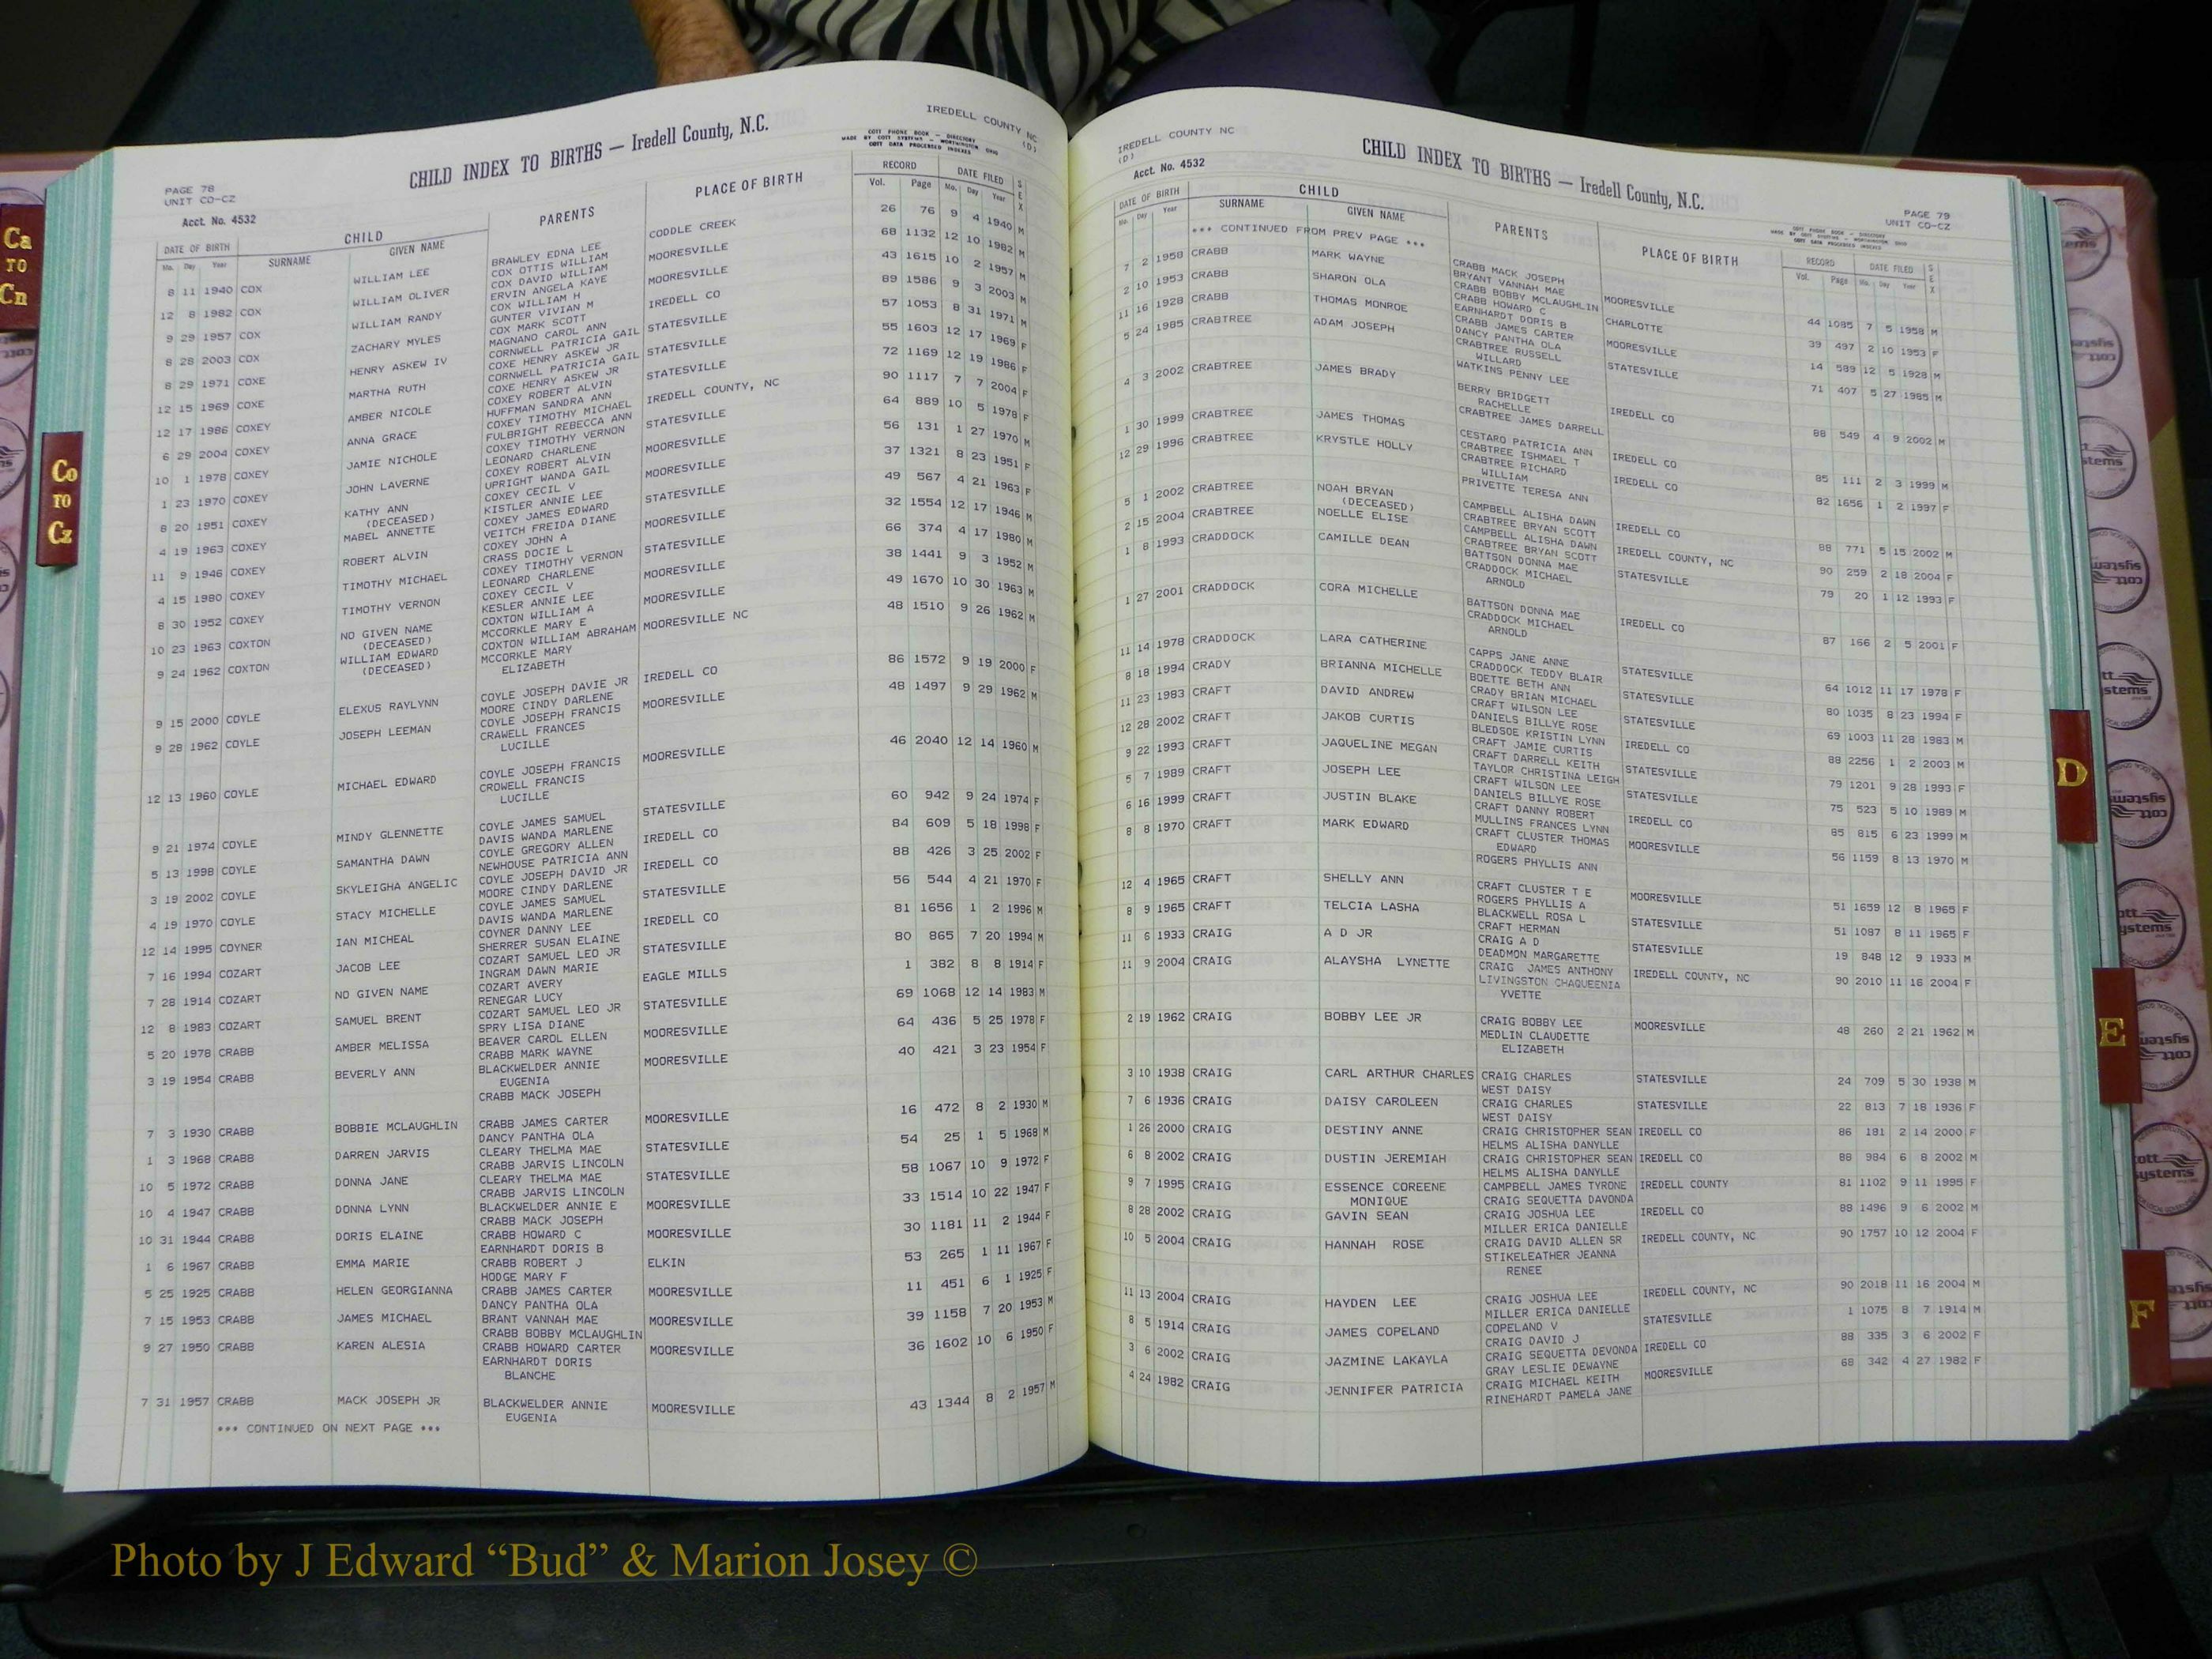 IREDELL COUNTY NC
(D)
CHILD INDEX TO BIRTHS — Iredell County, N.C.
COTT PHONE BOOK — DIRECTORY
MADE BY COTT SYSTEMS — WORTHINGTON OHIO
COTT DATA PROCESSED INDEXES
PAGE 78
UNIT CO-CZ
Acct. No. 4532
DATE OF BIRTH CHILD PARENTS PLACE OF BIRTH RECORD DATE FILED SEX
Mo. Day Year SURNAME GIVEN NAME Vol. Page Mo. Day Year
8 11 1940 COX WILLIAM LEE BRAWLEY EDNA LEE CODDLE CREEK 26 76 9 4 1940 M
COX OTTIS WILLIAM
12 8 1982 COX WILLIAM OLIVER COX DAVID WILLIAM MOORESVILLE 68 1132 12 10 1982 M
ERVIN ANGELA KAYE
9 29 1957 COX WILLIAM RANDY COX WILLIAM H MOORESVILLE 43 1615 10 2 1957 M
GUNTER VIVIAN M
8 28 2003 COX ZACHARY MYLES COX MARK SCOTT IREDELL CO 89 1586 9 3 2003 M
MAGNANO CAROL ANN
8 29 1971 COXE HENRY ASKEW IV CORNWELL PATRICIA GAIL STATESVILLE 57 1053 8 31 1971 M
COXE HENRY ASKEW JR
12 15 1969 COXE MARTHA RUTH CORNWELL PATRICIA GAIL STATESVILLE 55 1603 12 17 1969 F
COXE HENRY ASKEW JR
12 17 1986 COXEY AMBER NICOLE COXEY ROBERT ALVIN STATESVILLE 72 1169 12 19 1986 F
HUFFMAN SANDRA ANN
6 29 2004 COXEY ANNA GRACE COXEY TIMOTHY MICHAEL IREDELL COUNTY, NC 90 1117 7 7 2004 F
FULBRIGHT REBECCA ANN
10 1 1978 COXEY JAMIE NICHOLE COXEY TIMOTHY VERNON STATESVILLE 64 889 10 5 1978 F
LEONARD CHARLENE
1 23 1970 COXEY JOHN LAVERNE COXEY ROBERT ALVIN MOORESVILLE 56 131 1 27 1970 M
UPRIGHT WANDA GAIL
8 20 1951 COXEY KATHY ANN COXEY CECIL V MOORESVILLE 37 1321 8 23 1951 F
(DECEASED) KISTLER ANNIE LEE
4 19 1963 COXEY MABEL ANNETTE COXEY JAMES EDWARD STATESVILLE 49 567 4 21 1963 F
VEITCH FREIDA DIANE
11 9 1946 COXEY ROBERT ALVIN COXEY JOHN A MOORESVILLE 32 1554 12 17 1946 M
CRASS DOCIE L
4 15 1980 COXEY TIMOTHY MICHAEL COXEY TIMOTHY VERNON STATESVILLE 66 374 4 17 1980 M
LEONARD CHARLENE
8 30 1952 COXEY TIMOTHY VERNON COXEY CECIL V MOORESVILLE 38 1441 9 3 1952 M
KESLER ANNIE LEE
10 23 1963 COXTON NO GIVEN NAME COXTON WILLIAM A MOORESVILLE 49 1670 10 30 1963 M
(DECEASED) MCCORKLE MARY E
9 24 1962 COXTON WILLIAM EDWARD COXTON WILLIAM ABRAHAM MOORESVILLE NC 48 1510 9 26 1962 M
(DECEASED) MCCORKLE MARY
ELIZABETH
9 15 2000 COYLE ELEXUS RAYLYNN COYLE JOSEPH DAVIE JR IREDELL CO 86 1572 9 19 2000 F
MOORE CINDY DARLENE
9 28 1962 COYLE JOSEPH LEEMAN COYLE JOSEPH FRANCIS MOORESVILLE 48 1497 9 29 1962 M
CRAWELL FRANCES
LUCILLE
12 13 1960 COYLE MICHAEL EDWARD COYLE JOSEPH FRANCIS MOORESVILLE 46 2040 12 14 1960 M
CROWELL FRANCIS
LUCILLE
9 21 1974 COYLE MINDY GLENNETTE COYLE JAMES SAMUEL STATESVILLE 60 942 9 24 1974 F
DAVIS WANDA MARLENE
5 13 1998 COYLE SAMANTHA DAWN COYLE GREGORY ALLEN IREDELL CO 84 609 5 18 1998 F
NEWHOUSE PATRICIA ANN
3 19 2002 COYLE SKYLEIGHA ANGELIC COYLE JOSEPH DAVID JR IREDELL CO 88 426 3 25 2002 F
MOORE CINDY DARLENE
4 19 1970 COYLE STACY MICHELLE COYLE JAMES SAMUEL STATESVILLE 56 544 4 21 1970 F
DAVIS WANDA MARLENE
12 14 1995 COYNER IAN MICHEAL COYNER DANNY LEE IREDELL CO 81 1656 1 2 1996 M
SHERRER SUSAN ELAINE
7 16 1994 COZART JACOB LEE COZART SAMUEL LEO JR STATESVILLE 80 865 7 20 1994 M
INGRAM DAWN MARIE
7 28 1914 COZART NO GIVEN NAME COZART AVERY EAGLE MILLS 1 382 8 8 1914 F
RENEGAR LUCY
12 8 1983 COZART SAMUEL BRENT COZART SAMUEL LEO JR STATESVILLE 69 1068 12 14 1983 M
SPRY LISA DIANE
5 20 1978 CRABB AMBER MELISSA BEAVER CAROL ELLEN MOORESVILLE 64 436 5 25 1978 F
CRABB MARK WAYNE
3 19 1954 CRABB BEVERLY ANN BLACKWELDER ANNIE MOORESVILLE 40 421 3 23 1954 F
EUGENIA
CRABB MACK JOSEPH
7 3 1930 CRABB BOBBIE MCLAUGHLIN CRABB JAMES CARTER MOORESVILLE 16 472 8 2 1930 M
DANCY PANTHA OLA
1 3 1968 CRABB DARREN JARVIS CLEARY THELMA MAE STATESVILLE 54 25 1 5 1968 M
CRABB JARVIS LINCOLN
10 5 1972 CRABB DONNA JANE CLEARY THELMA MAE STATESVILLE 58 1067 10 9 1972 F
CRABB JARVIS LINCOLN
10 4 1947 CRABB DONNA LYNN BLACKWELDER ANNIE E MOORESVILLE 33 1514 10 22 1947 F
CRABB MACK JOSEPH
10 31 1944 CRABB DORIS ELAINE CRABB HOWARD C MOORESVILLE 30 1181 11 2 1944 F
EARNHARDT DORIS B
1 6 1967 CRABB EMMA MARIE CRABB ROBERT J ELKIN 53 265 1 11 1967 F
HODGE MARY F
5 25 1925 CRABB HELEN GEORGIANNA CRABB JAMES CARTER MOORESVILLE 11 451 6 1 1925 F
DANCY PANTHA OLA
7 15 1953 CRABB JAMES MICHAEL BRANT VANNAH MAE MOORESVILLE 39 1158 7 20 1953 M
CRABB BOBBY MCLAUGHLIN
9 27 1950 CRABB KAREN ALESIA CRABB HOWARD CARTER MOORESVILLE 36 1602 10 6 1950 F
EARNHARDT DORIS
BLANCHE
7 31 1957 CRABB MACK JOSEPH JR BLACKWELDER ANNIE MOORESVILLE 43 1344 8 2 1957 M
EUGENIA
*** CONTINUED ON NEXT PAGE ***
IREDELL COUNTY NC
(D)
Acct. No. 4532
CHILD INDEX TO BIRTHS — Iredell County, N.C.
PAGE 79
UNIT CO-CZ
COTT PHONE BOOK — DIRECTORY
MADE BY COTT SYSTEMS — WORTHINGTON OHIO
COTT DATA PROCESSED INDEXES
DATE OF BIRTH CHILD PARENTS PLACE OF BIRTH RECORD DATE FILED SEX
Mo. Day Year SURNAME GIVEN NAME Vol. Page Mo. Day Year
*** CONTINUED FROM PREV PAGE ***
7 2 1958 CRABB MARK WAYNE CRABB MACK JOSEPH MOORESVILLE 44 1085 7 5 1958 M
2 10 1953 CRABB SHARON OLA BRYANT VANNAH MAE CHARLOTTE 39 497 2 10 1953 F
CRABB BOBBY MCLAUGHLIN
CRABB HOWARD C
EARNHARDT DORIS B
11 16 1928 CRABB THOMAS MONROE CRABB JAMES CARTER MOORESVILLE 14 589 12 5 1928 M
DANCY PANTHA OLA
5 24 1985 CRABTREE ADAM JOSEPH CRABTREE RUSSELL STATESVILLE 71 407 5 27 1985 M
WILLARD
WATKINS PENNY LEE
4 3 2002 CRABTREE JAMES BRADY BERRY BRIDGETT IREDELL CO 88 549 4 9 2002 M
RACHELLE
CRABTREE JAMES DARRELL
1 30 1999 CRABTREE JAMES THOMAS CESTARO PATRICIA ANN IREDELL CO 85 111 2 3 1999 M
CRABTREE ISHMAEL T
12 29 1996 CRABTREE KRYSTLE HOLLY CRABTREE RICHARD IREDELL CO 82 1656 1 2 1997 F
WILLIAM
PRIVETTE TERESA ANN
5 1 2002 CRABTREE NOAH BRYAN CAMPBELL ALISHA DAWN IREDELL CO 88 771 5 15 2002 M
(DECEASED) CRABTREE BRYAN SCOTT
2 15 2004 CRABTREE NOELLE ELISE CAMPBELL ALISHA DAWN IREDELL COUNTY, NC 90 259 2 18 2004 F
CRABTREE BRYAN SCOTT
1 8 1993 CRADDOCK CAMILLE DEAN BATTSON DONNA MAE STATESVILLE 79 20 1 12 1993 F
CRADDOCK MICHAEL
ARNOLD
1 27 2001 CRADDOCK CORA MICHELLE BATTSON DONNA MAE IREDELL CO 87 166 2 5 2001 F
CRADDOCK MICHAEL
ARNOLD
11 14 1978 CRADDOCK LARA CATHERINE CAPPS JANE ANNE STATESVILLE 64 1012 11 17 1978 F
CRADDOCK TEDDY BLAIR
8 18 1994 CRADY BRIANNA MICHELLE BOETTE BETH ANN STATESVILLE 80 1035 8 23 1994 F
CRADY BRIAN MICHAEL
11 23 1983 CRAFT DAVID ANDREW CRAFT WILSON LEE STATESVILLE 69 1003 11 28 1983 M
DANIELS BILLYE ROSE
12 28 2002 CRAFT JAKOB CURTIS BLEDSOE KRISTIN LYNN IREDELL CO 88 2256 1 2 2003 M
CRAFT JAMIE CURTIS
9 22 1993 CRAFT JAQUELINE MEGAN CRAFT DARRELL KEITH STATESVILLE 79 1201 9 28 1993 F
TAYLOR CHRISTINA LEIGH
5 7 1989 CRAFT JOSEPH LEE CRAFT WILSON LEE STATESVILLE 75 523 5 10 1989 M
DANIELS BILLYE ROSE
6 16 1999 CRAFT JUSTIN BLAKE CRAFT DANNY ROBERT IREDELL CO 85 815 6 23 1999 M
MULLINS FRANCES LYNN
8 8 1970 CRAFT MARK EDWARD CRAFT CLUSTER THOMAS MOORESVILLE 56 1159 8 13 1970 M
EDWARD
ROGERS PHYLLIS ANN
12 4 1965 CRAFT SHELLY ANN CRAFT CLUSTER T E MOORESVILLE 51 1659 12 8 1965 F
ROGERS PHYLLIS A
8 9 1965 CRAFT TELCIA LASHA BLACKWELL ROSA L STATESVILLE 51 1087 8 11 1965 F
CRAFT HERMAN
11 6 1933 CRAIG A D JR CRAIG A D STATESVILLE 19 848 12 9 1933 M
DEADMON MARGARETTE
11 9 2004 CRAIG ALAYSHA LYNETTE CRAIG JAMES ANTHONY IREDELL COUNTY, NC 90 2010 11 16 2004 F
LIVINGSTON CHAQUEENIA
YVETTE
2 19 1962 CRAIG BOBBY LEE JR CRAIG BOBBY LEE MOORESVILLE 48 260 2 21 1962 M
MEDLIN CLAUDETTE
ELIZABETH
3 10 1938 CRAIG CARL ARTHUR CHARLES CRAIG CHARLES STATESVILLE 24 709 5 30 1938 M
WEST DAISY
7 6 1936 CRAIG DAISY CAROLEEN CRAIG CHARLES STATESVILLE 22 813 7 18 1936 F
WEST DAISY
1 26 2000 CRAIG DESTINY ANNE CRAIG CHRISTOPHER SEAN IREDELL CO 86 181 2 14 2000 F
HELMS ALISHA DANYLLE
6 8 2002 CRAIG DUSTIN JEREMIAH CRAIG CHRISTOPHER SEAN IREDELL CO 88 984 6 8 2002 M
HELMS ALISHA DANYLLE
9 7 1995 CRAIG ESSENCE COREENE CAMPBELL JAMES TYRONE IREDELL COUNTY 81 1102 9 11 1995 F
MONIQUE CRAIG SEQUETTA DAVONDA
8 28 2002 CRAIG GAVIN SEAN CRAIG JOSHUA LEE IREDELL CO 88 1496 9 6 2002 M
MILLER ERICA DANIELLE
10 5 2004 CRAIG HANNAH ROSE CRAIG DAVID ALLEN SR IREDELL COUNTY, NC 90 1757 10 12 2004 F
STIKELEATHER JEANNA
RENEE
11 13 2004 CRAIG HAYDEN LEE CRAIG JOSHUA LEE IREDELL COUNTY, NC 90 2018 11 16 2004 M
MILLER ERICA DANIELLE
8 5 1914 CRAIG JAMES COPELAND COPELAND V STATESVILLE 1 1075 8 7 1914 M
CRAIG DAVID J
3 6 2002 CRAIG JAZMINE LAKAYLA CRAIG SEQUETTA DEVONDA IREDELL CO 88 335 3 6 2002 F
GRAY LESLIE DEWAYNE
4 24 1982 CRAIG JENNIFER PATRICIA CRAIG MICHAEL KEITH MOORESVILLE 68 342 4 27 1982 F
RINEHARDT PAMELA JANE
Ca
TO
Cn
Co
TO
Cz
D
E
F
Photo by J Edward “Bud” & Marion Josey ©